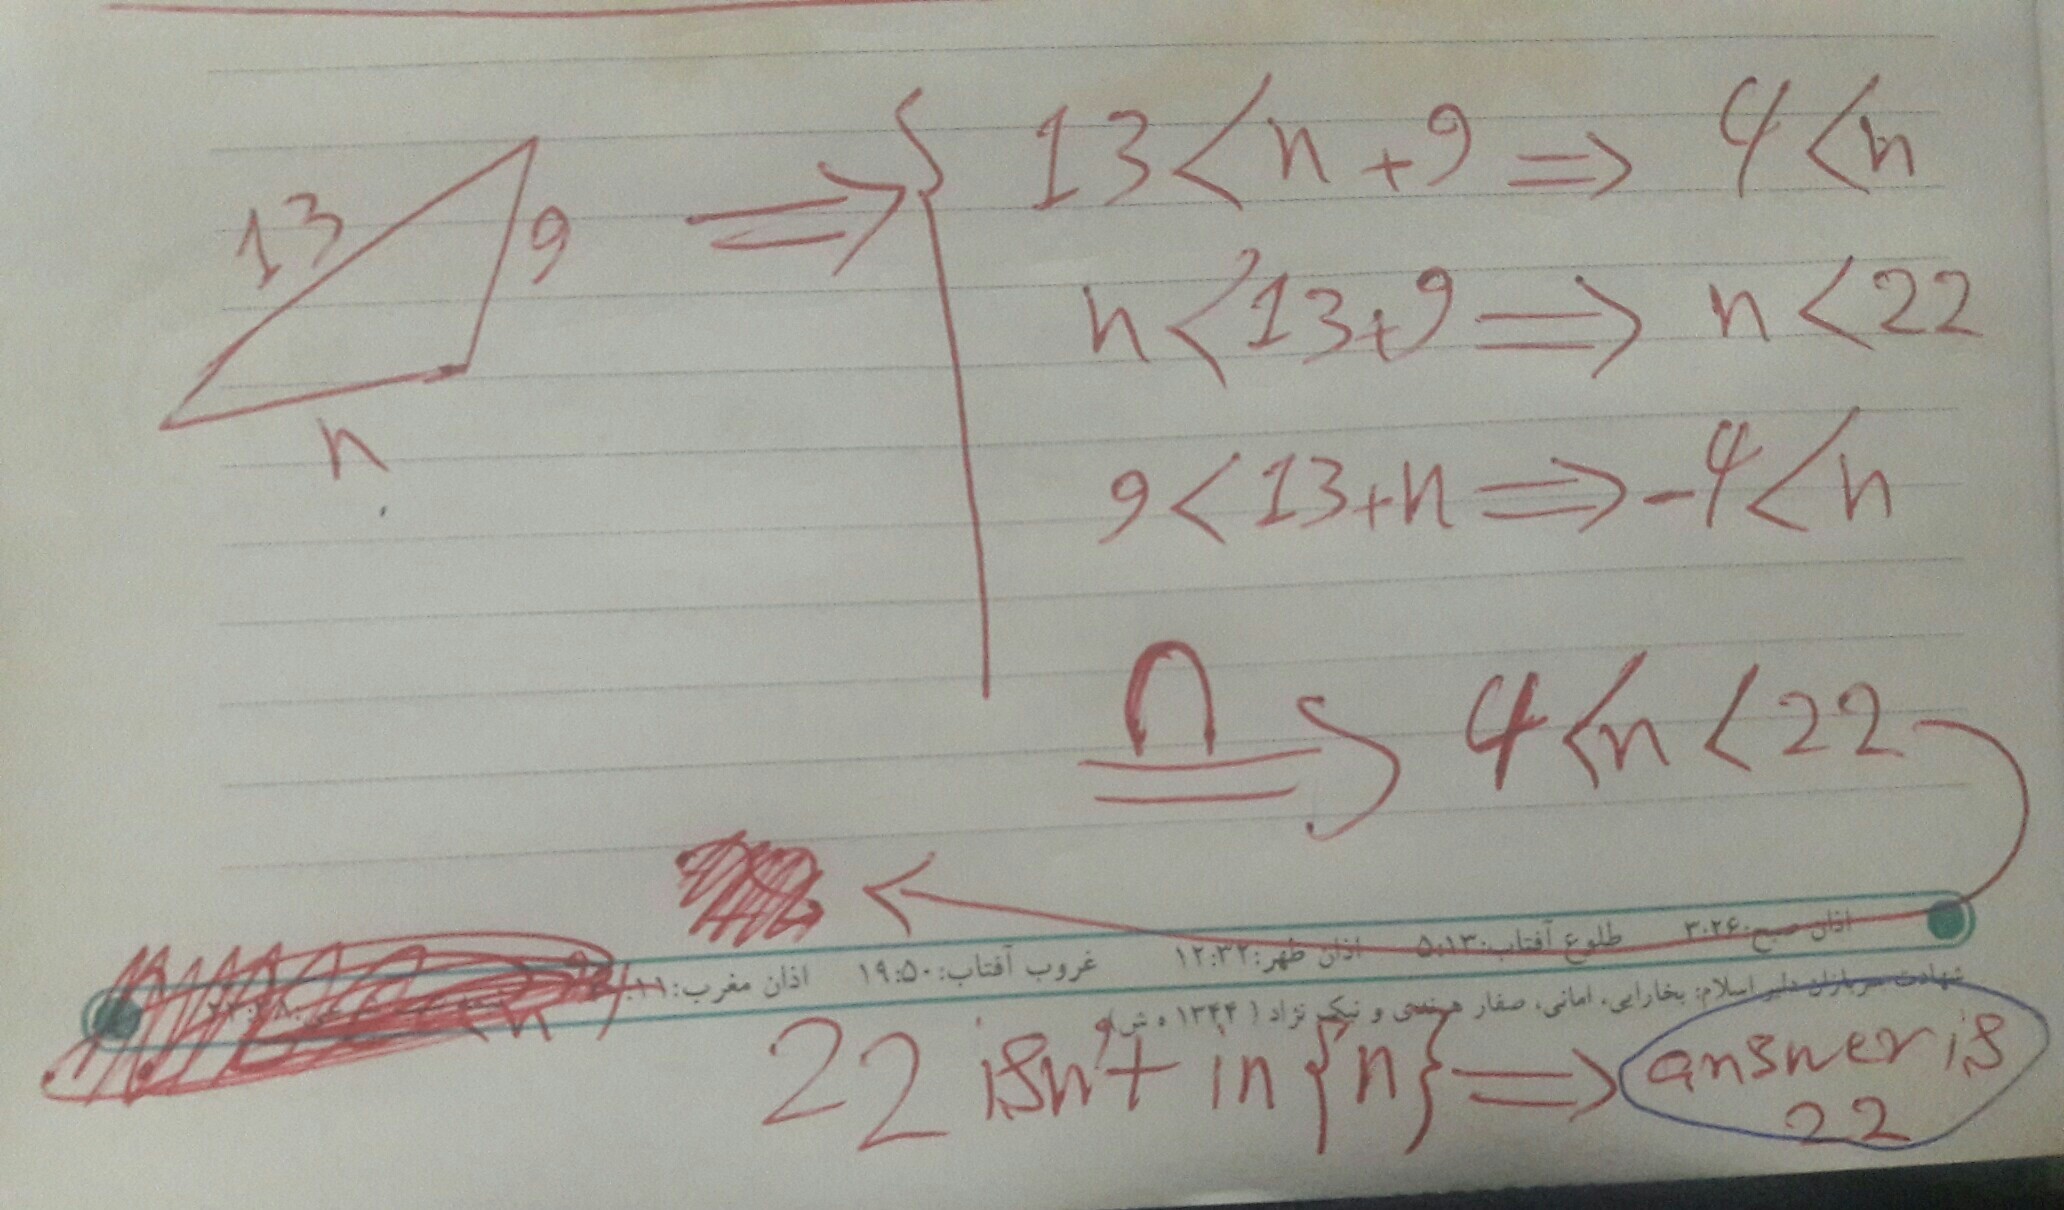 13 < n + 9 => 4 < n
13
9
n < 13 + 9 => n < 22
n
9 < 13 + n => -4 < n
∩ => 4 < n < 22
اذان صبح: ۳:۲۶ طلوع آفتاب: ۵:۱۳ اذان ظهر: ۱۲:۳۲ غروب آفتاب: ۱۹:۵۰ اذان مغرب:
شهادت سربازان دلیر اسلام: بخارایی، امانی، صفار هرندی و نیک نژاد ( ۱۳۴۴ ه ش)
22 isn't in {n} => answer is
22